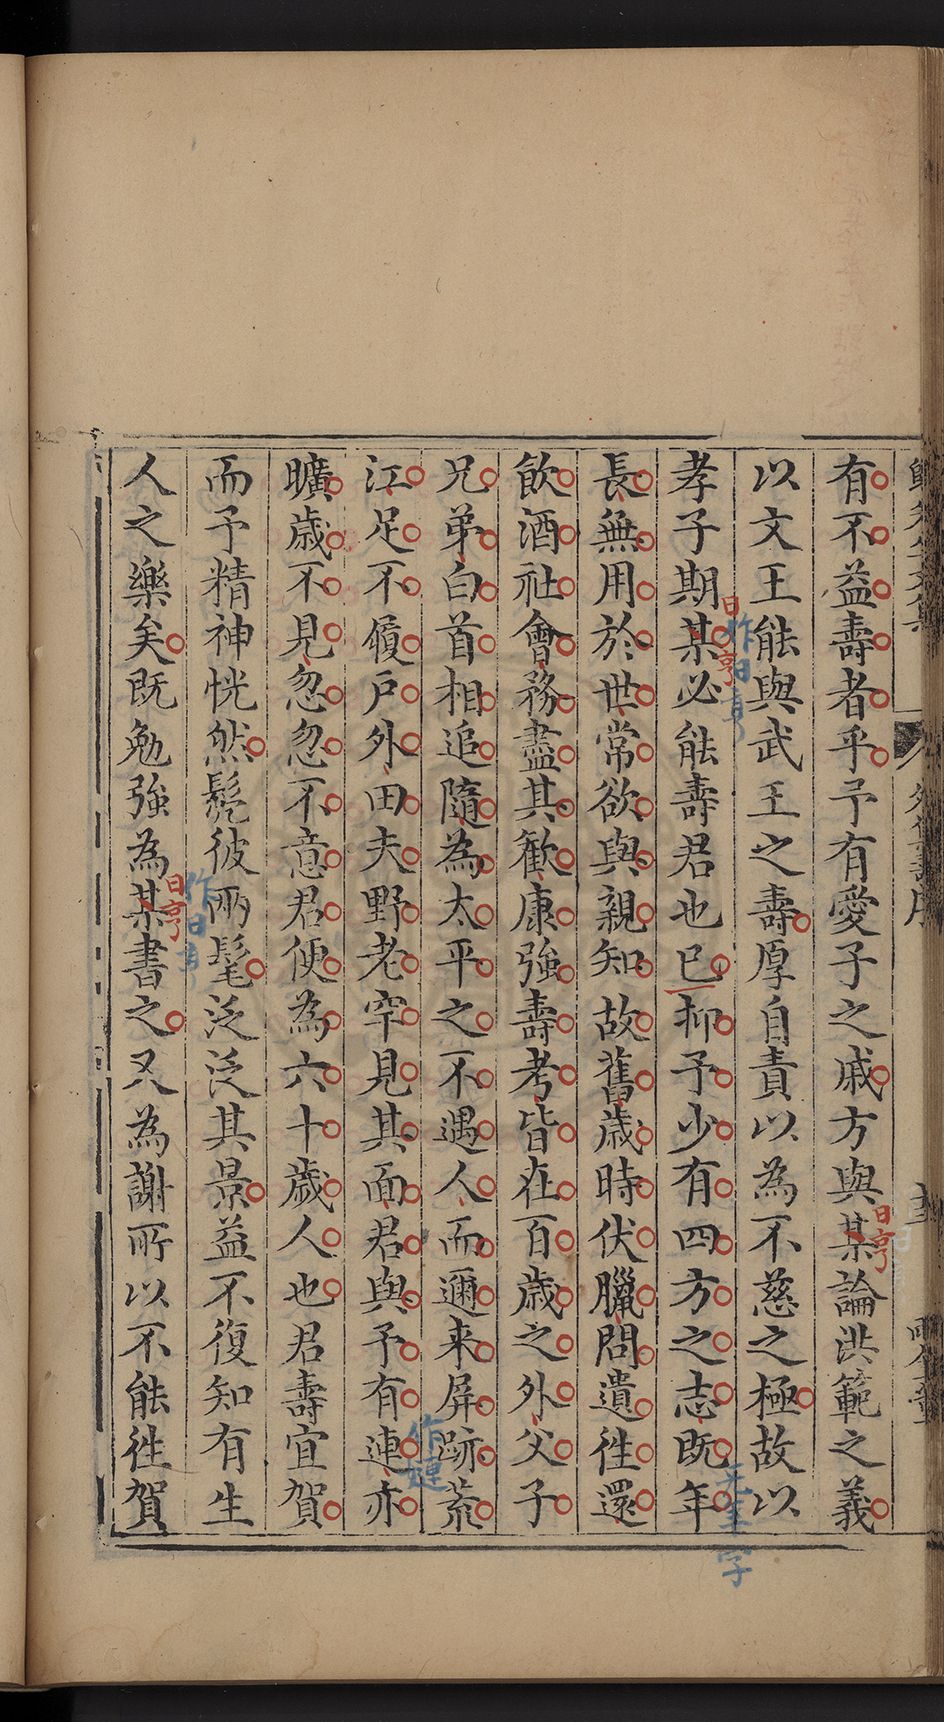 有不益壽者乎予有愛子之戚方與某論洪範之義
日亨
以文王能與武王之壽厚自責以為不慈之極故以
作日亨
孝子期某必能壽君也已抑予少有四方之志既年
日亨
長無用於世常欲與親知故舊歲時伏臘問遺徃還
飲酒社會務盡其歡康強壽考皆在百歲之外父子
兄弟白首相追隨為太平之不遇人而邇来屏跡荒
作
江足不履戶外田夫野老罕見其面君與予有連亦
曠歲不見忽忽不意君便為六十歲人也君壽宜賀
而予精神恍然髡彼兩髦泛泛其景益不復知有生
作日
人之樂矣既勉強為某書之又為謝所以不能徃賀
日亨